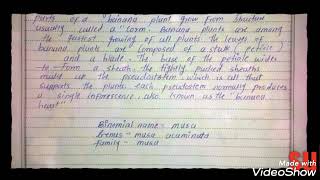 parts of a "banana" plant grow from structure
usually called a "corm. Banana plants are among
the fastest growing of all plants the leaves of
banana plants are composed of a stalk (petiole)
and a blade. The base of the petiole widens
to form a sheath the tightly packed sheaths
make up the pseudostem which is all that
supports the plant. each pseudostem normally produces
a single inflorescence also known as the "banana
heart"
Binomial name = musa
Genus = musa acuminata
family = musa
Made with
VideoShow